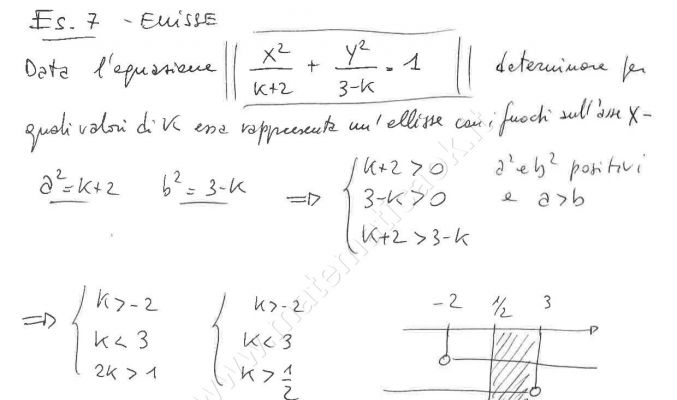 Es. 7 - Ellisse
Data l'equazione || x²/(k+2) + y²/(3-k) = 1 || determinare per
quali valori di K essa rappresenta un'ellisse con i fuochi sull'asse x-
a² = k+2 b² = 3-k ⇒ { k+2 > 0 a² e b² positivi
3-k > 0 e a > b
k+2 > 3-k
-2 1/2 3
⇒ { k > -2 { k > -2
k < 3 k < 3
2k > 1 k > 1/2
www.matematicaok.it